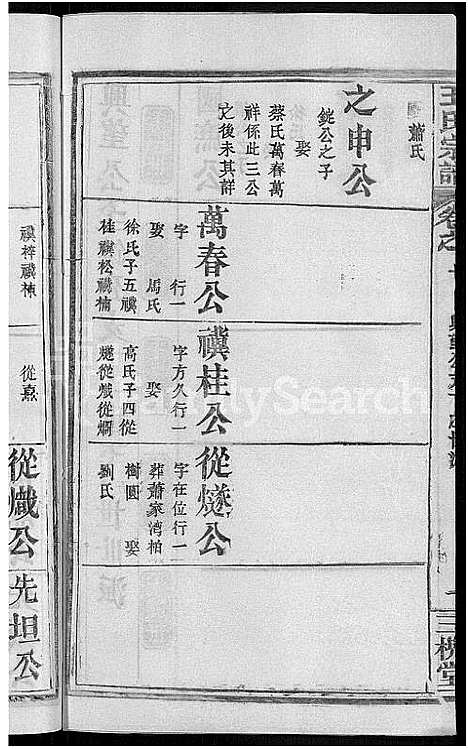 王氏宗譜
三槐堂
蕭氏
之申公
錠公之子
娶
蔡氏萬春萬
祥係此三公
之後未其詳
萬春公
字 行一
娶 馬氏
徐氏子五禩
桂禩松禩楠
禩桂公
字方久行一
娶
高氏子四從
燧從熾從烱
從燧公
字在位行一
葬蕭家湾柏
樹園 娶
劉氏
禩梓禩楝
從熹
從熾公
先坦公
FamilySearch